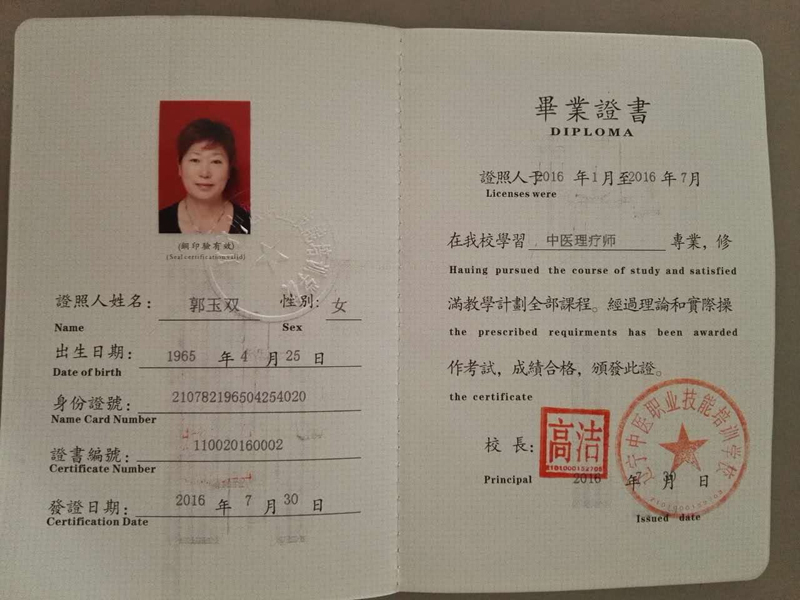 (鋼印驗有效)
(Seal certification valid)
證照人姓名： 郭玉双 性別: 女
Name Sex
出生日期： 1965 年 4 月 25 日
Date of birth
身份證號： 210782196504254020
Name Card Number
證書編號： 110020160002
Certificate Number
發證日期： 2016 年 7 月 30 日
Certification Date
畢業證書
DIPLOMA
證照人于2016 年 1 月至2016 年 7月
Licenses were
在我校學習 中医理疗师 專業，修
Hauing pursued the course of study and satisfied
滿教學計劃全部課程。經過理論和實際操
the prescribed requirments has been awarded
作考試，成績合格，頒發此證。
the certificate
校長： 高洁
Principal 2016 年 7 月 30 日
辽宁中医职业技能培训学校
Issued date